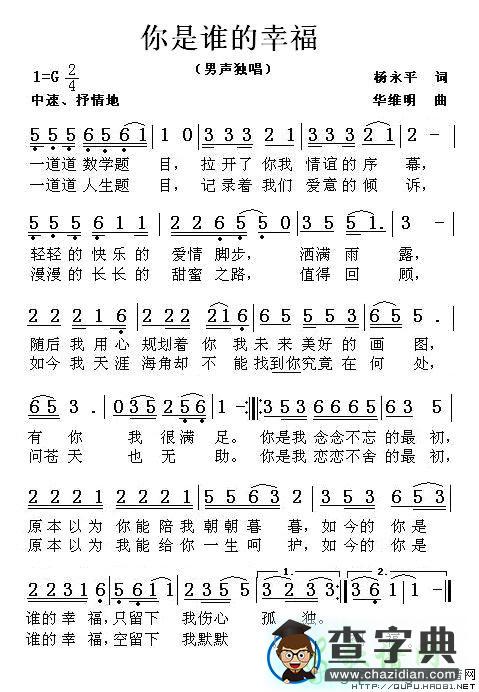 你是谁的幸福
（男声独唱）
1=G 2/4
杨永平 词
中速、抒情地
华维明 曲
5 5 5 5 6 5 6 1 1 0 3 3 3 2 1 3 3 2 1 2 -
一道道 数学题 目，拉开了 你我 情谊的序 幕，
一道道 人生题 目，记录着 我们 爱意的倾 诉，
5 5 5 5 6 1 1 2 2 6 5 5 0 3 5 5 2 1.
轻轻的 快乐的 爱情 脚步， 洒满 雨 露，
漫漫的 长长的 甜蜜 之路， 值得 回 顾，
2 2 2 1 6 2 2 2 2 1 6 6 5 5 5 5 6 5 2
随后 我 用心 规划着 你 我 未来 美好的 画 图，
如今 我 天涯 海角却 不 能找到你究竟 在何 处，
6 5 3 . 0 3 5 2 5 6 1 - 3 5 3 5 6 6 6 5 6 3 5
有 你 我 很满 足。你是我 念念不忘的最 初，
问苍 天 也 无 助。你是我 恋恋不舍的最 初，
2 2 2 1 2 2 2 1 5 5 6 3 3 5 3 6 5 3
原本以为 你能陪我 朝朝暮 暮，如今的 你是
原本以为 我能给你 一生呵 护，如今的 你是
2 2 3 1 6 5 6 6 1 2 5 5
谁的幸 福，只留下 我伤心 孤 独。
谁的幸 福，空留下 我默默
1. 2. 3.
查字典
www.chazidian.com